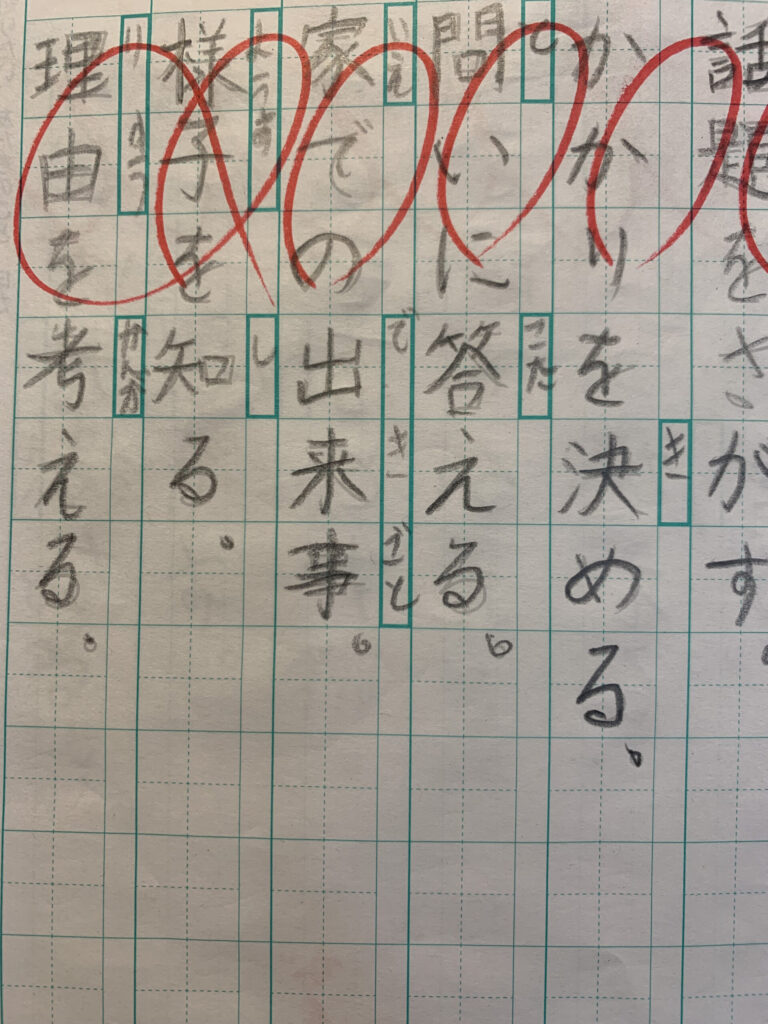 話題をさがす
かかりを決める。
き
問いに答える。
と
こた
家での出来事。
いえ
で き ごと
様子を知る。
ようす
し
理由を考える。
り ゆう
かんが